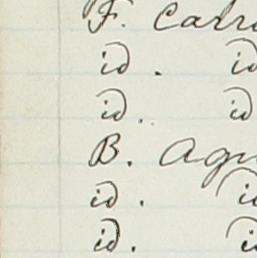 F. Carr
id. id
id. id
B. Agu
id. id
id. id